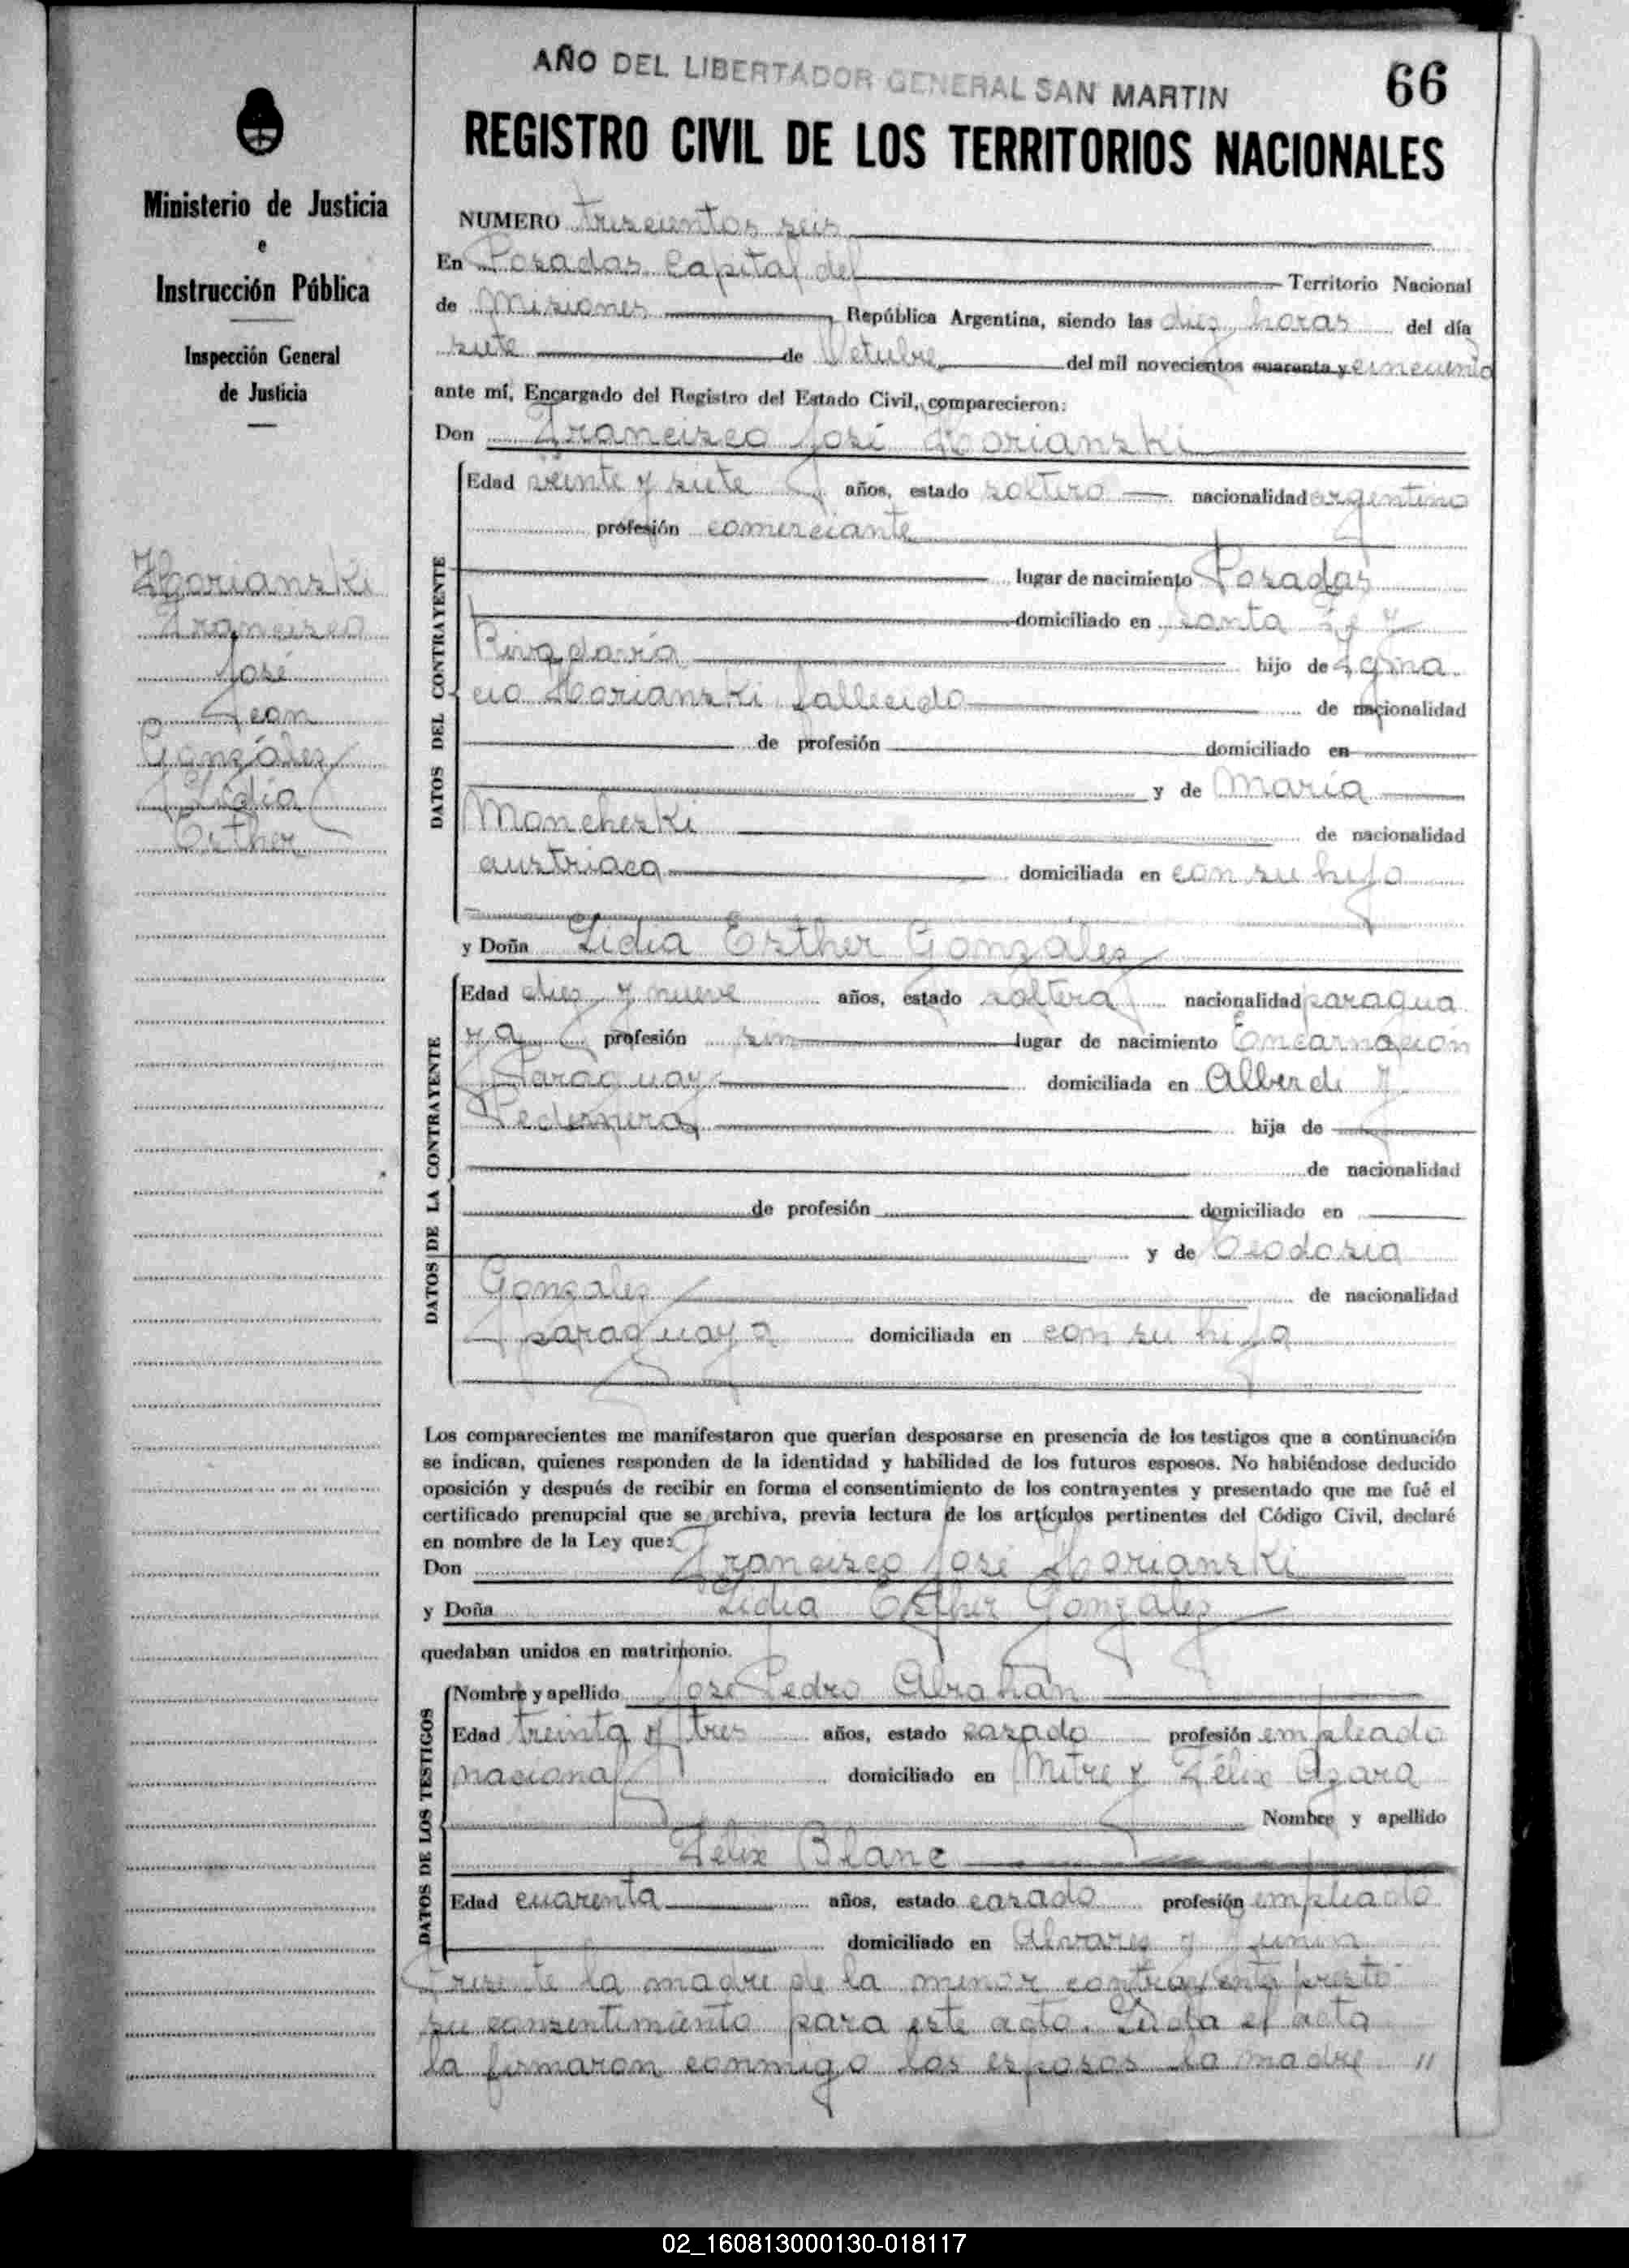 AÑO DEL LIBERTADOR GENERAL SAN MARTIN
66
REGISTRO CIVIL DE LOS TERRITORIOS NACIONALES
Ministerio de Justicia
e
Instrucción Pública
Inspección General
de Justicia
Horianski
Francisco
José
con
González
Lidia
Esther
NUMERO trescientos seis
En Posadas Capital del Territorio Nacional
de Misiones República Argentina, siendo las diez horas del día
siete de Octubre del mil novecientos cuarenta y cincuenta
ante mí, Encargado del Registro del Estado Civil, comparecieron:
Don Francisco José Horianski
DATOS DEL CONTRAYENTE
Edad veinte y siete años, estado soltero nacionalidad argentino
profesión comerciante
lugar de nacimiento Posadas
domiciliado en Santa Fe y
Rivadavia hijo de Igna
cio Horianski fallecido de nacionalidad
de profesión domiciliado en
y de María
Moncheski de nacionalidad
austriaca domiciliada en con su hijo
y Doña Lidia Esther González
DATOS DE LA CONTRAYENTE
Edad diez y nueve años, estado soltera nacionalidad paragua
ya profesión sin lugar de nacimiento Encarnación
Paraguay domiciliada en Alberdi y
Pedernera hija de
de nacionalidad
de profesión domiciliado en
y de Teodosia
González de nacionalidad
paraguaya domiciliada en con su hija
Los comparecientes me manifestaron que querían desposarse en presencia de los testigos que a continuación
se indican, quienes responden de la identidad y habilidad de los futuros esposos. No habiéndose deducido
oposición y después de recibir en forma el consentimiento de los contrayentes y presentado que me fué el
certificado prenupcial que se archiva, previa lectura de los artículos pertinentes del Código Civil, declaré
en nombre de la Ley que:
Don Francisco José Horianski
y Doña Lidia Esther González
quedaban unidos en matrimonio.
DATOS DE LOS TESTIGOS
Nombre y apellido José Pedro Abrahán
Edad treinta y tres años, estado casado profesión empleado
nacional domiciliado en Mitre y Félix Azara
Nombre y apellido
Felix Blanc
Edad cuarenta años, estado casado profesión empleado
domiciliado en Alvarez y Junin
Presente la madre de la menor contrayente prestó
su consentimiento para este acto. Leida el acta
la firmaron conmigo los esposos la madre "
02_160813000130-018117